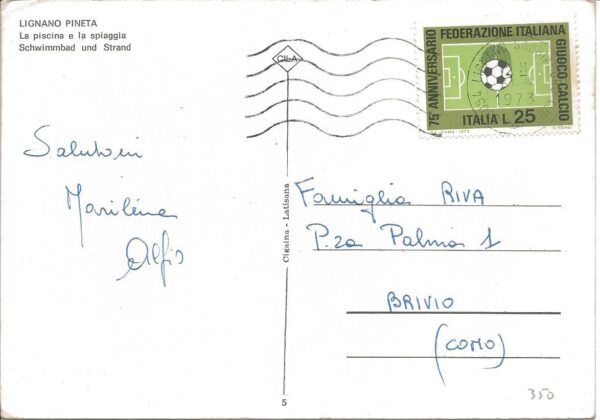 LIGNANO PINETA
La piscina e la spiaggia
Schwimmbad und Strand
Salutoni
Marilena
Alfio
CILA
Cigaina - Latisana
5
75° ANNIVERSARIO
FEDERAZIONE ITALIANA
GIUOCO CALCIO
ITALIA L. 25
1973
Famiglia RIVA
P.za Palma 1
BRIVIO
(COMO)
350